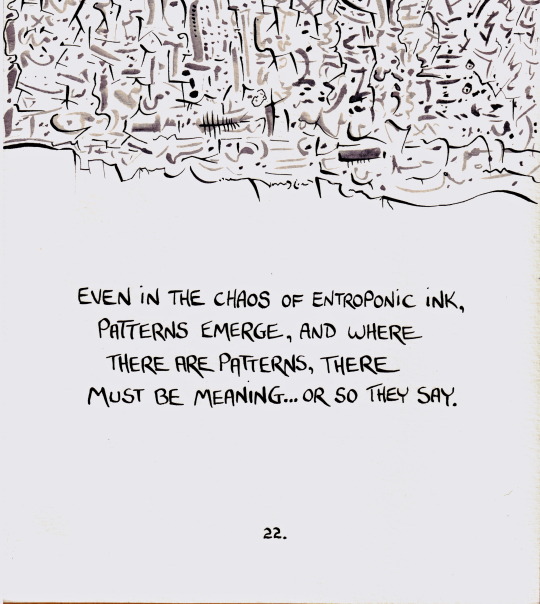 EVEN iN THE CHAOS OF ENTROPONIC iNK,
PATTERNS EMERGE, AND WHERE
THERE ARE PATTERNS, THERE
MUST BE MEANiNG... OR SO THEY SAY.
22.